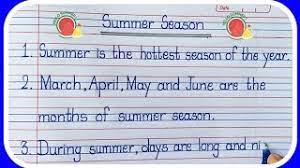 Date
Summer Season
1. Summer is the hottest season of the year.
2. March, April, May and June are the
months of summer season.
3. During summer, days are long and ni